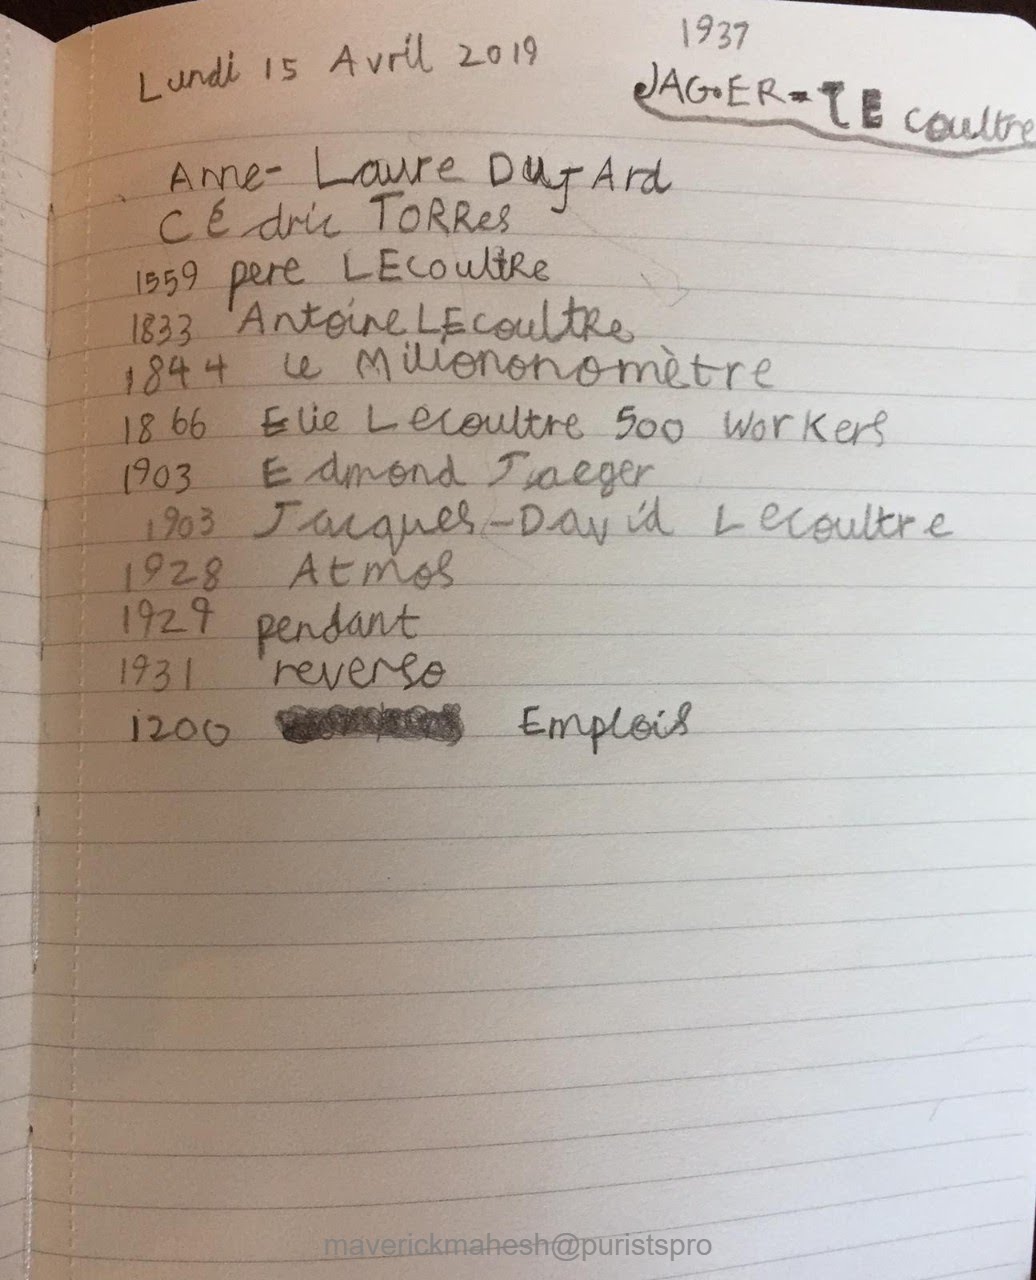 1937
Lundi 15 Avril 2019
JAGER-LE coultre
Anne-Laure DUJARd
CÉdric TORRes
1559 pere LECoultRe
1833 Antoine LECoultRe
1844 Le Millionnonomètre
1866 Elie Lecoultre 500 Workers
1903 Edmond Jaeger
1903 Jacques-David Lecoultre
1928 Atmos
1929 pendant
1931 reverso
1200 Emplois
maverickmahesh@puristspro